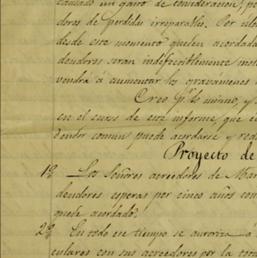 causado un gasto de consideracion, p
dores de perdidas irreparables. Por ulti
desde este momento queden acordada
deudores seran indefectiblemente mol
vendrá a aumentar los gravámenes
Creo q.e lo mismo, y
en el curso de este informe, que el
deudor comun puede acordarse y red
Proyecto de
1.a Los Señores acreedores de Mar
deudores esperas por cinco años con
quede acordado.
2.a En todo en tiempo se autoriza á
culares con sus acreedores por la tota